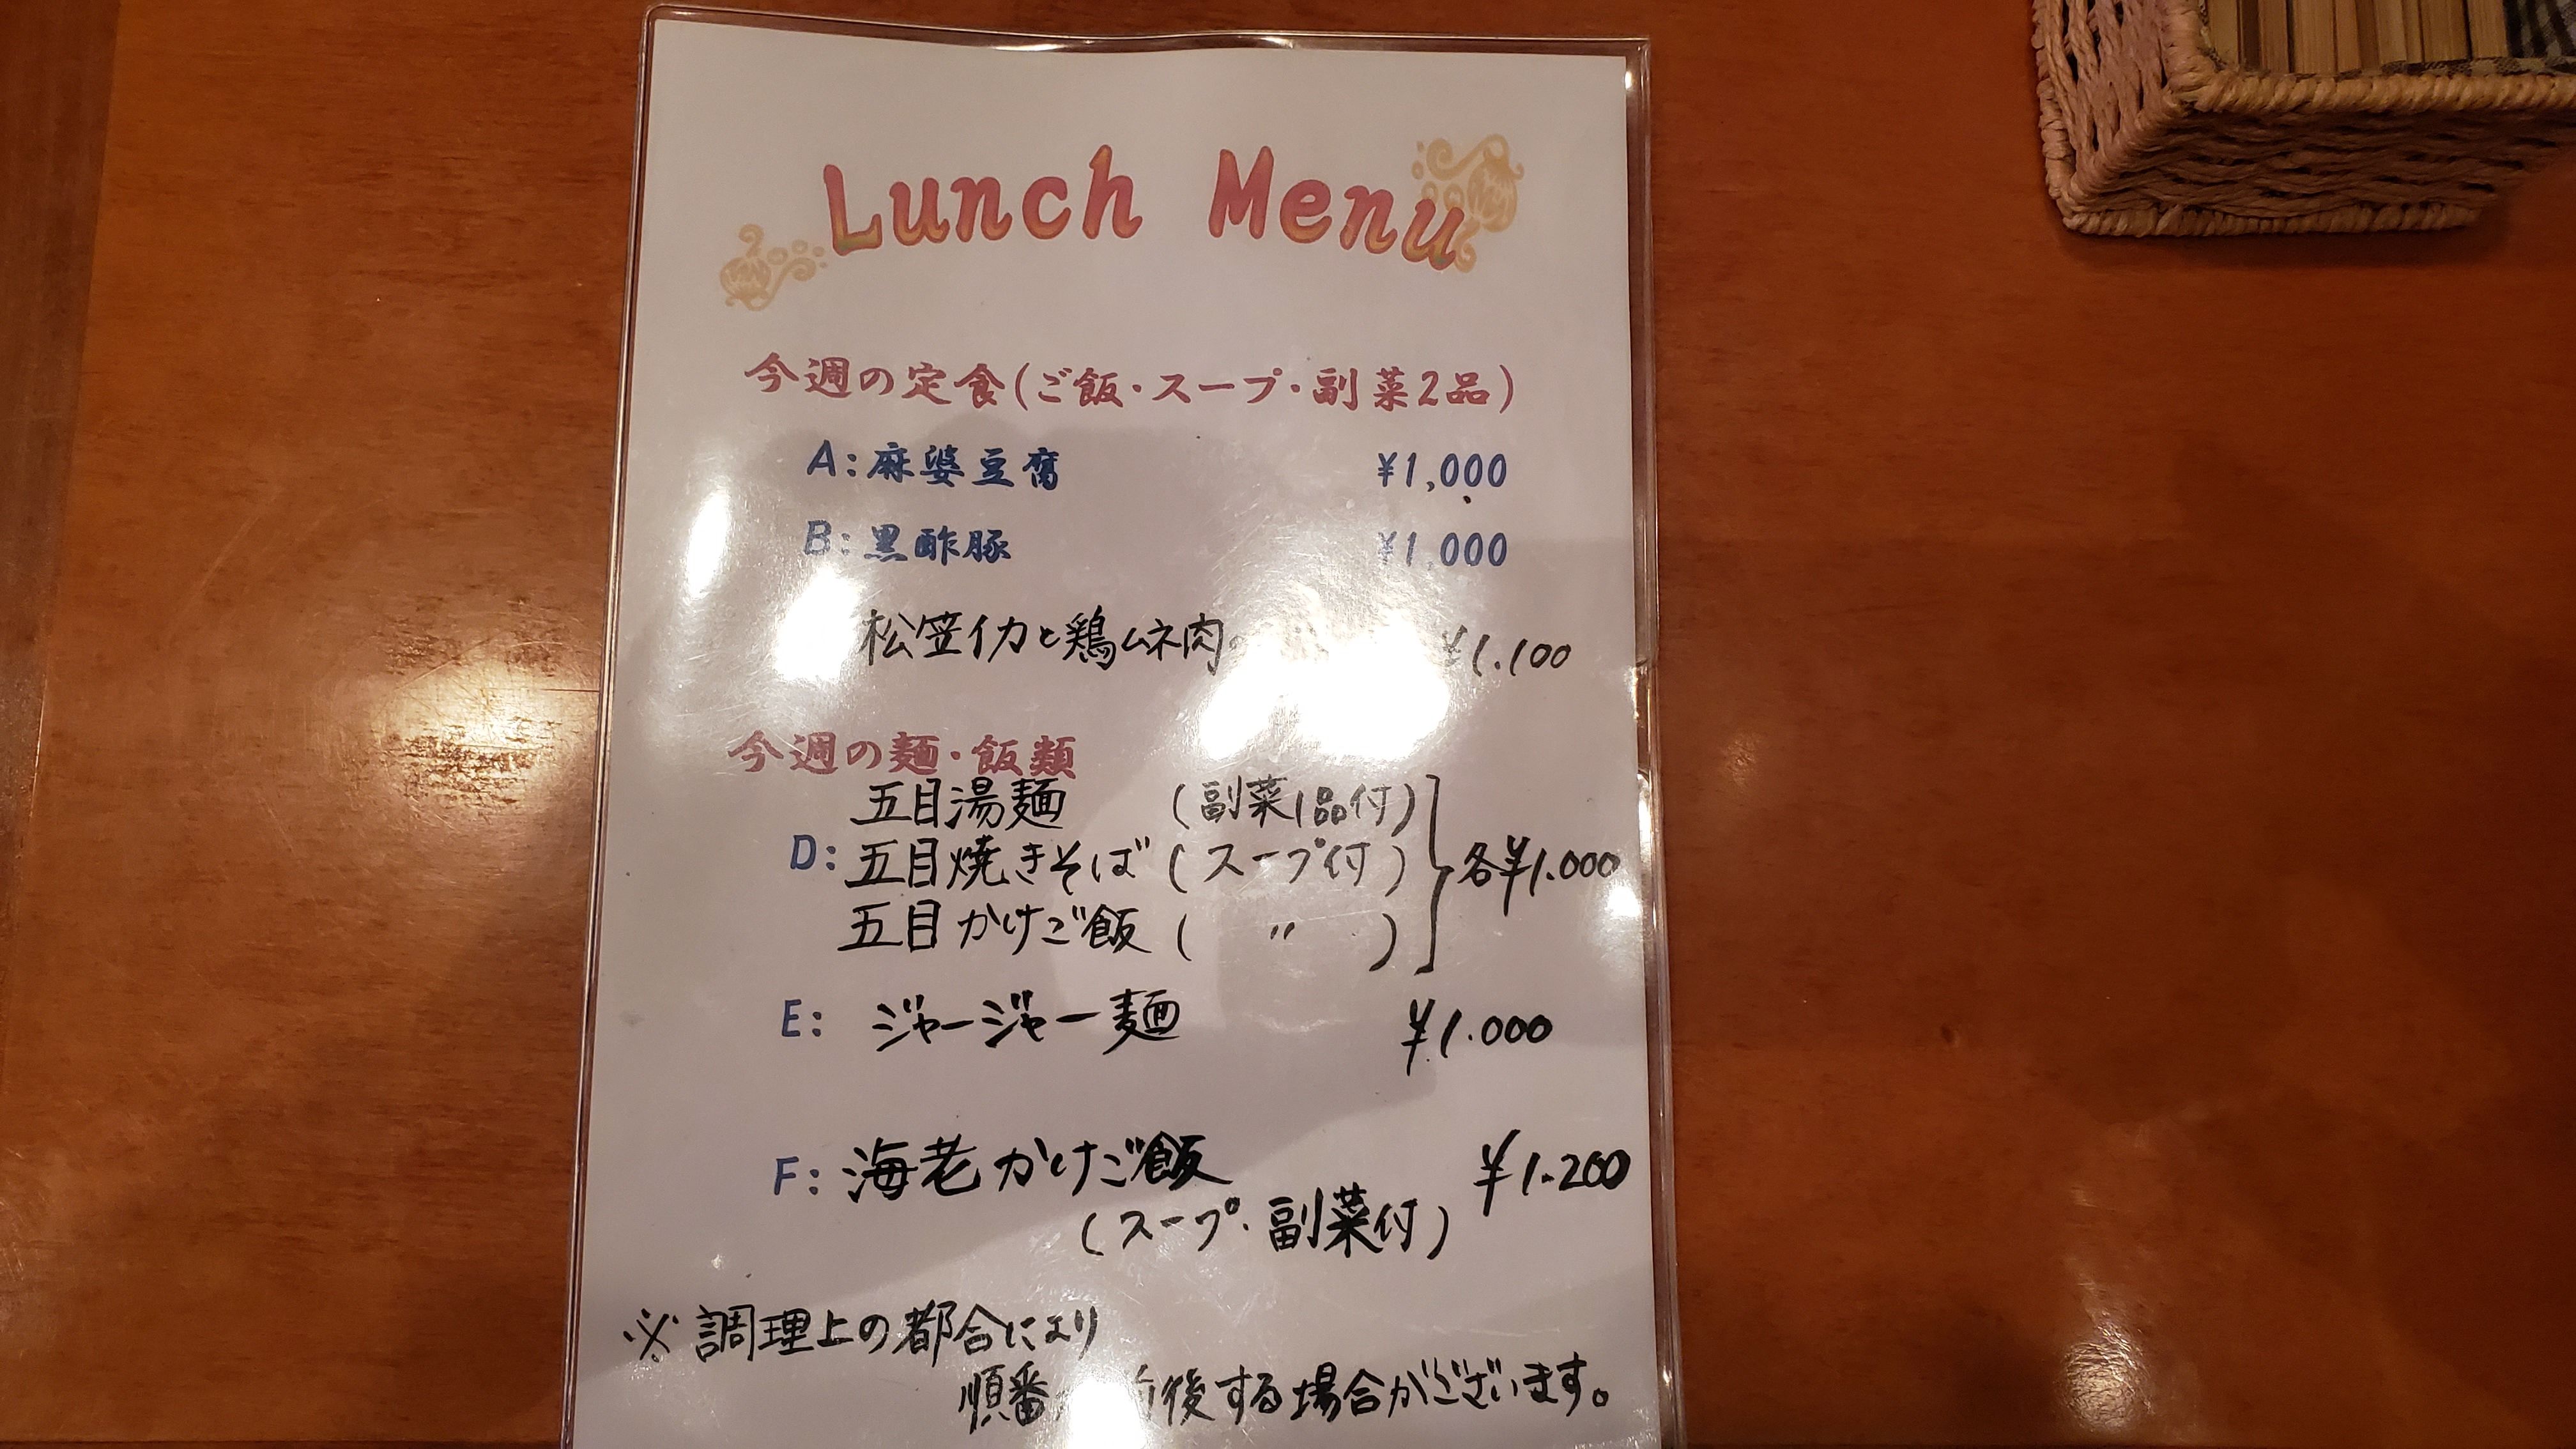 Lunch Menu
今週の定食(ご飯・スープ・副菜2品)
A:麻婆豆腐 ¥1,000
B:黒酢豚 ¥1,000
松笠イカと鶏ムネ肉 ¥1.100
今週の麺・飯類
五目湯麺 (副菜1品付)
D:五目焼きそば (スープ付) 各¥1.000
五目かけご飯 ( 〃 )
E: ジャージャー麺 ¥1.000
F:海老かけご飯 ¥1.200
(スープ・副菜付)
※調理上の都合により
順番 後する場合がございます。